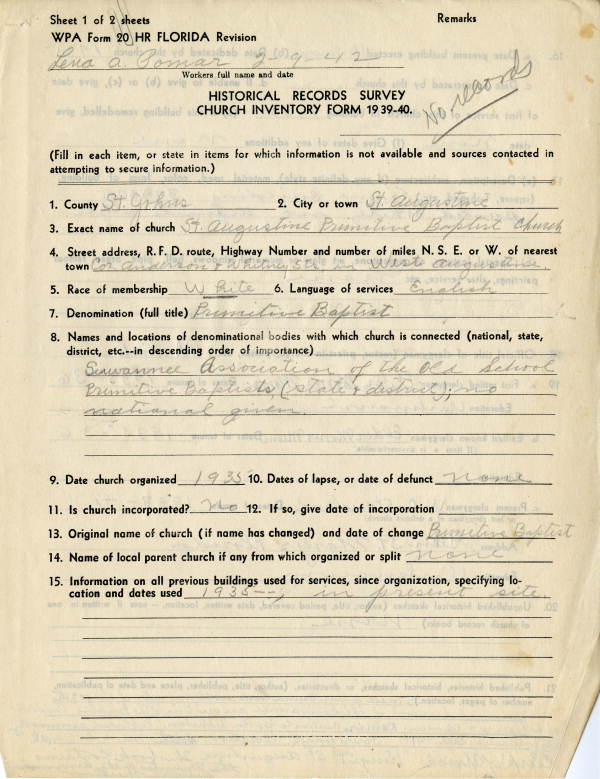 Sheet 1 of 2 sheets
Remarks
WPA Form 20 HR FLORIDA Revision
Lena A. Pomar 2-9-42
Workers full name and date
HISTORICAL RECORDS SURVEY
CHURCH INVENTORY FORM 1939-40.
No records
(Fill in each item, or state in items for which information is not available and sources contacted in
attempting to secure information.)
1. County St. Johns 2. City or town St. Augustine
3. Exact name of church St. Augustine Primitive Baptist Church
4. Street address, R. F. D. route, Highway Number and number of miles N. S. E. or W. of nearest
town Cor Anderson & Whitney Sts. in West Augustine.
5. Race of membership White 6. Language of services English
7. Denomination (full title) Primitive Baptist
8. Names and locations of denominational bodies with which church is connected (national, state,
district, etc.--in descending order of importance)
Suwannee Association of the Old School
Primitive Baptists, (state & district); no
national given.
9. Date church organized 1935 10. Dates of lapse, or date of defunct none
11. Is church incorporated? No 12. If so, give date of incorporation
13. Original name of church (if name has changed) and date of change Primitive Baptist
14. Name of local parent church if any from which organized or split none
15. Information on all previous buildings used for services, since organization, specifying lo-
cation and dates used 1935--; in present site.